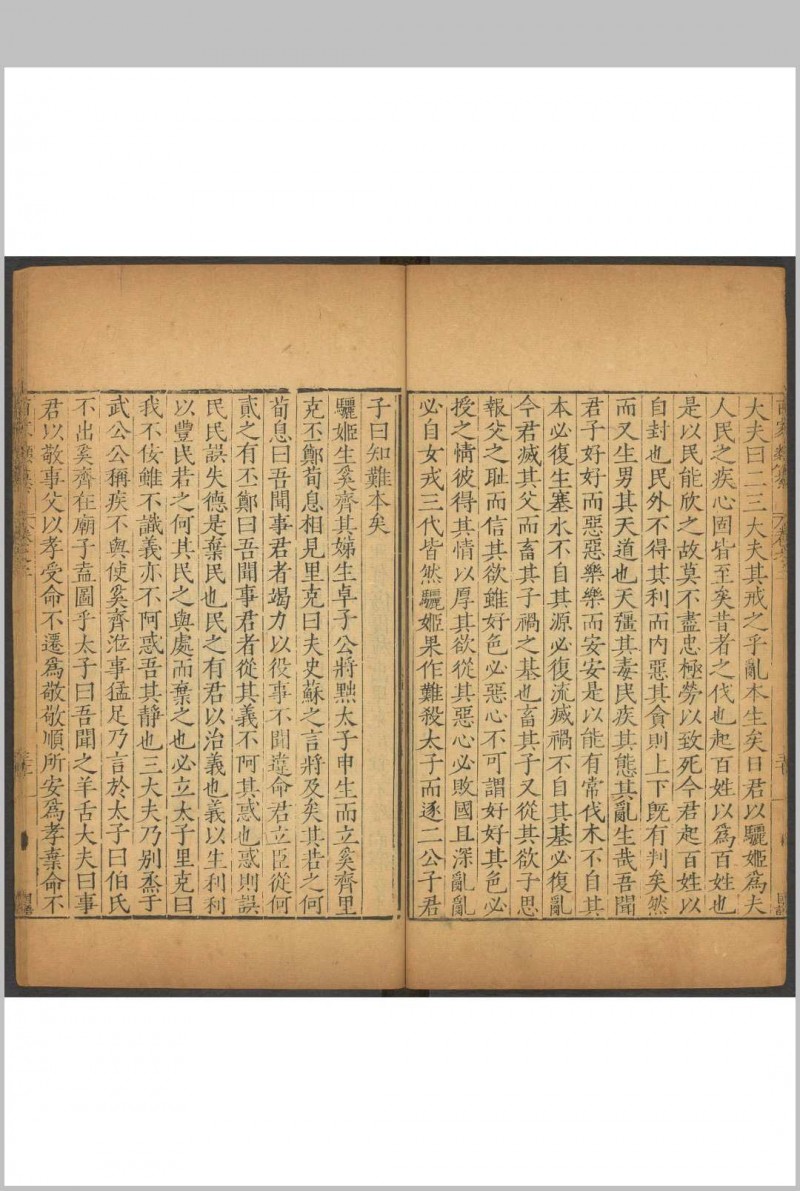 大夫曰二三大夫其戒之乎亂本生矣日君以驪姬爲夫
人民之疾心固皆至矣昔者之伐也起百姓以爲百姓也
是以民能欣之故莫不盡忠極勞以致死今君起百姓以
自封也民外不得其利而内惡其貪則上下旣有判矣然
而又生男其天道也天彊其毒民疾其態其亂生哉吾聞
君子好好而惡惡樂樂而安安是以能有常伐木不自其
本必復生塞水不自其源必復流滅禍不自其基必復亂
今君滅其父而畜其子禍之基也畜其子又從其欲子思
報父之恥而信其欲雖好色必惡心不可謂好好其色必
授之情彼得其情以厚其欲從其惡心必敗國且深亂亂
必自女戎三代皆然驪姬果作難殺太子而逐二公子君
子曰知難本矣
驪姬生奚齊其娣生卓子公將黜太子申生而立奚齊里
克丕鄭荀息相見里克曰夫史蘇之言將及矣其若之何
荀息曰吾聞事君者竭力以役事不聞違命君立臣從何
貳之有丕鄭曰吾聞事君者從其義不阿其惑也惑則誤
民民誤失德是棄民也民之有君以治義也義以生利利
以豐民若之何其民之與處而棄之也必立太子里克曰
我不佞雖不識義亦不阿惑吾其靜也三大夫乃别烝于
武公公稱疾不與使奚齊涖事猛足乃言於太子曰伯氏
不出奚齊在廟子盍圖乎太子曰吾聞之羊舌大夫曰事
君以敬事父以孝受命不遷爲敬敬順所安爲孝棄命不